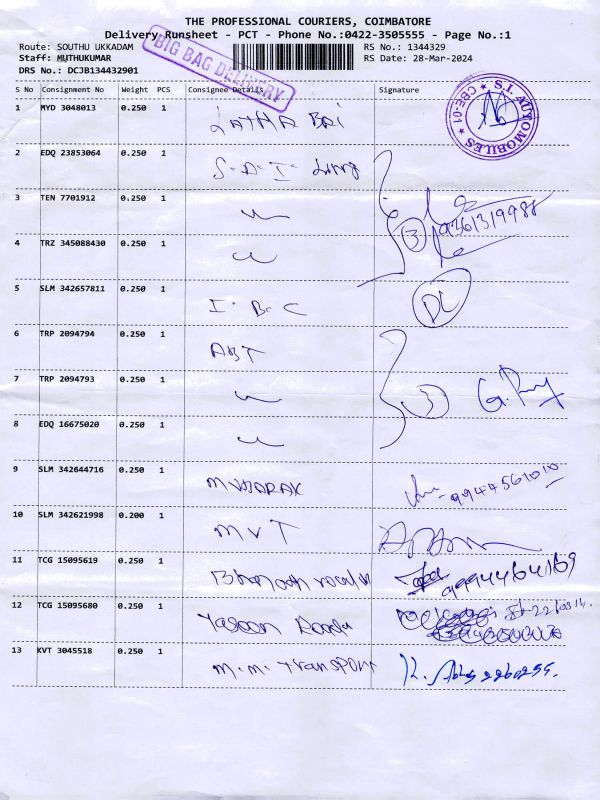 THE PROFESSIONAL COURIERS, COIMBATORE
Delivery Runsheet - PCT - Phone No.:0422-3505555 - Page No.:1
Route: SOUTHU UKKADAM RS No.: 1344329
Staff: MUTHUKUMAR RS Date: 28-Mar-2024
DRS No.: DCJB134432901
BIG BAG DELIVERY
S No Consignment No Weight PCS Consignee Details Signature
S.I. AUTOMOBILES
CBE-01
1 MYD 3048013 0.250 1 LATHA BAI
2 EDQ 23853064 0.250 1
3 TEN 7701912 0.250 1
3 9361319988
4 TRZ 345088430 0.250 1
5 SLM 342657811 0.250 1 I. B. C DC
6 TRP 2094794 0.250 1 ABT
7 TRP 2094793 0.250 1 3
8 EDQ 16675020 0.250 1
9 SLM 342644716 0.250 1 9944561010
10 SLM 342621998 0.200 1 MVT
11 TCG 15095619 0.250 1 9994464169
12 TCG 15095680 0.250 1
13 KVT 3045518 0.250 1 M.M. Transport 2260255.